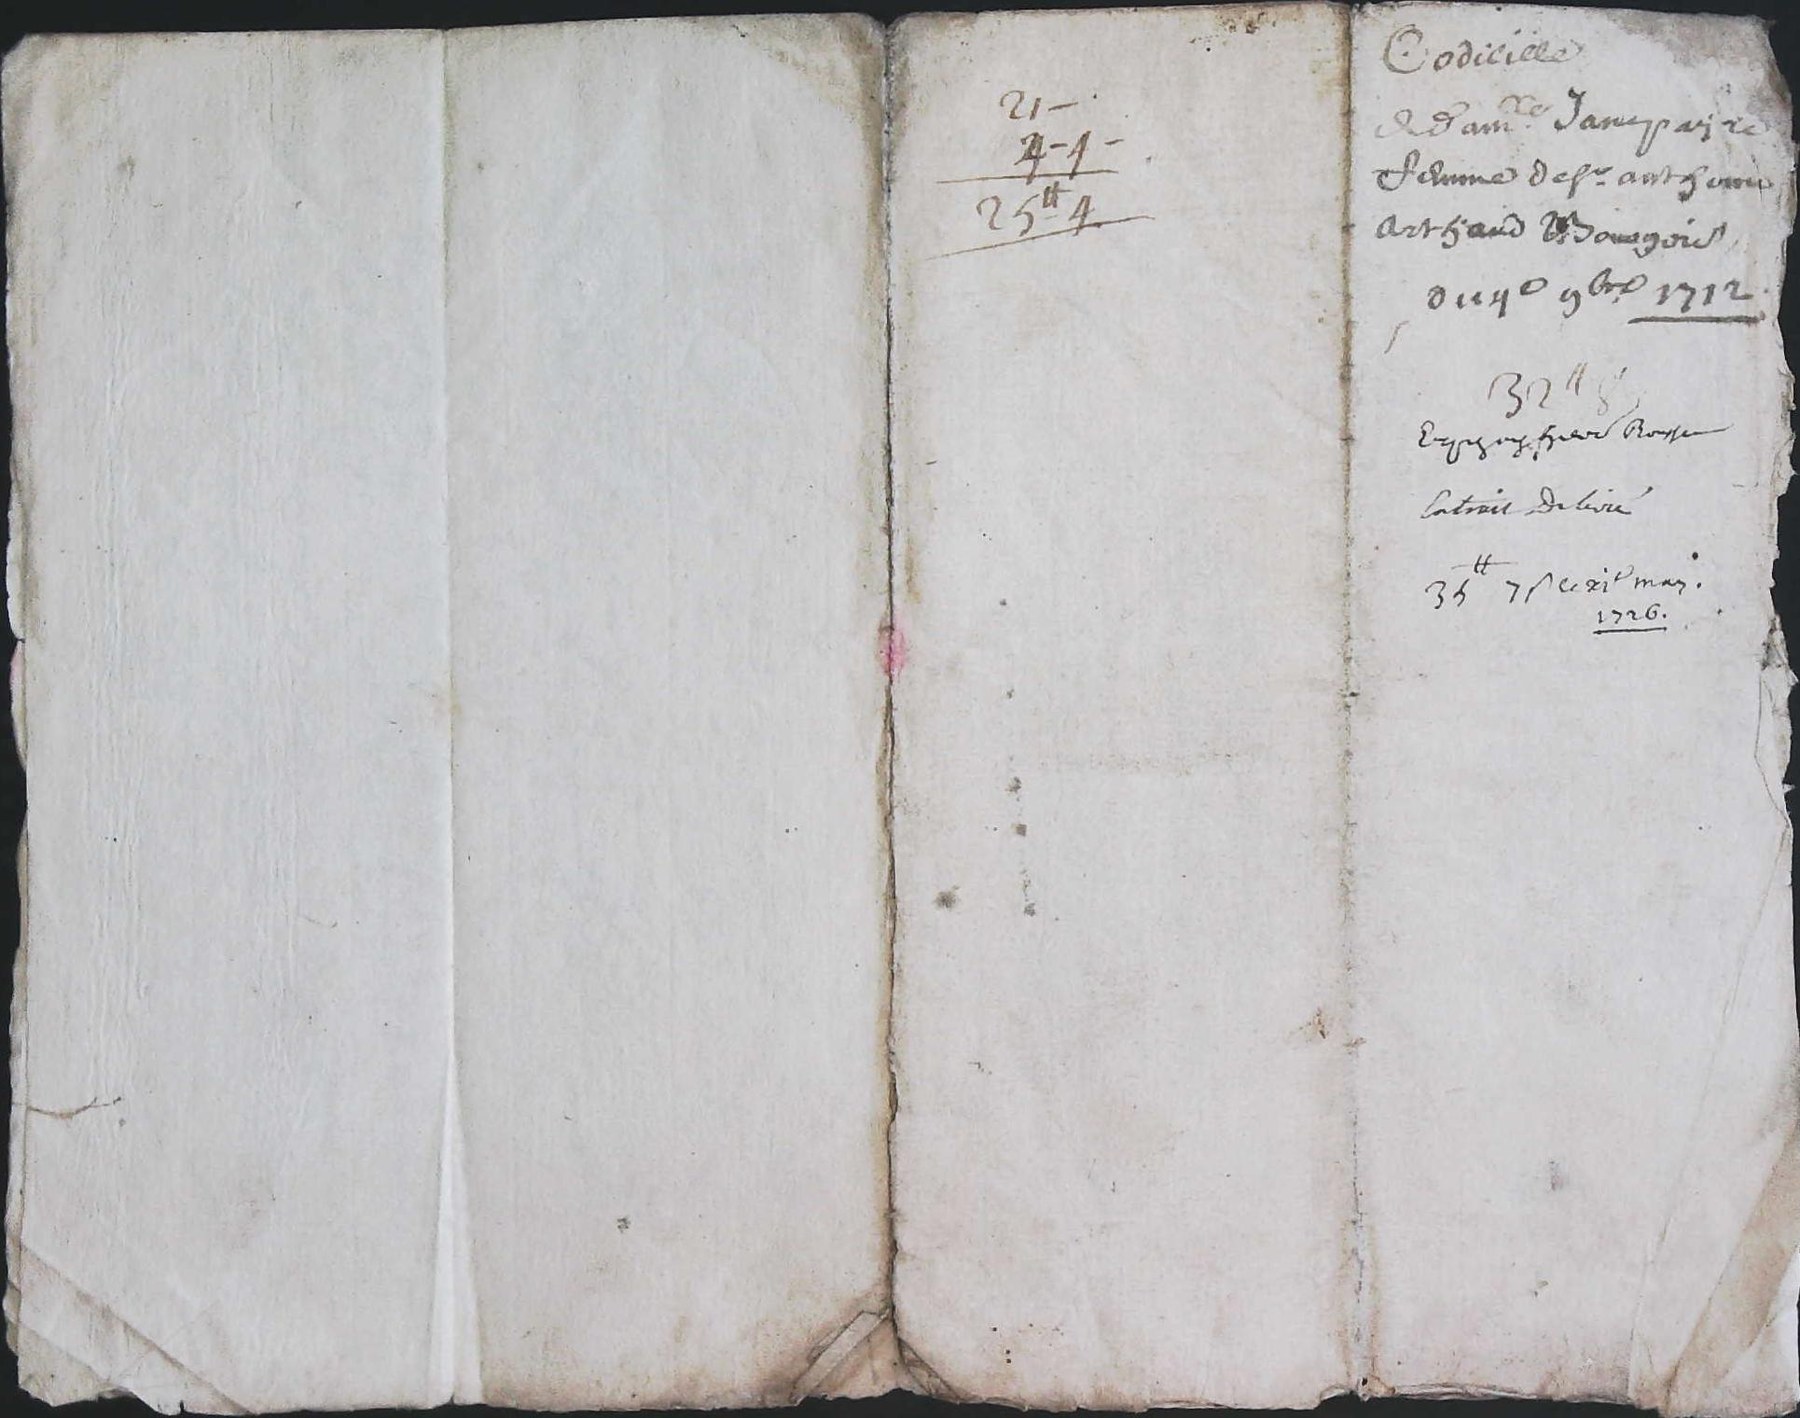 21 -
4 - 4 -
25tt 4
Codicille
de dam.lle Jane payre
femme de sr. anthoine
Arthaud Bourgois
du 4e 9bre 1712
32tt
Extrait Delivré
35tt 7s le xie may.
1726.